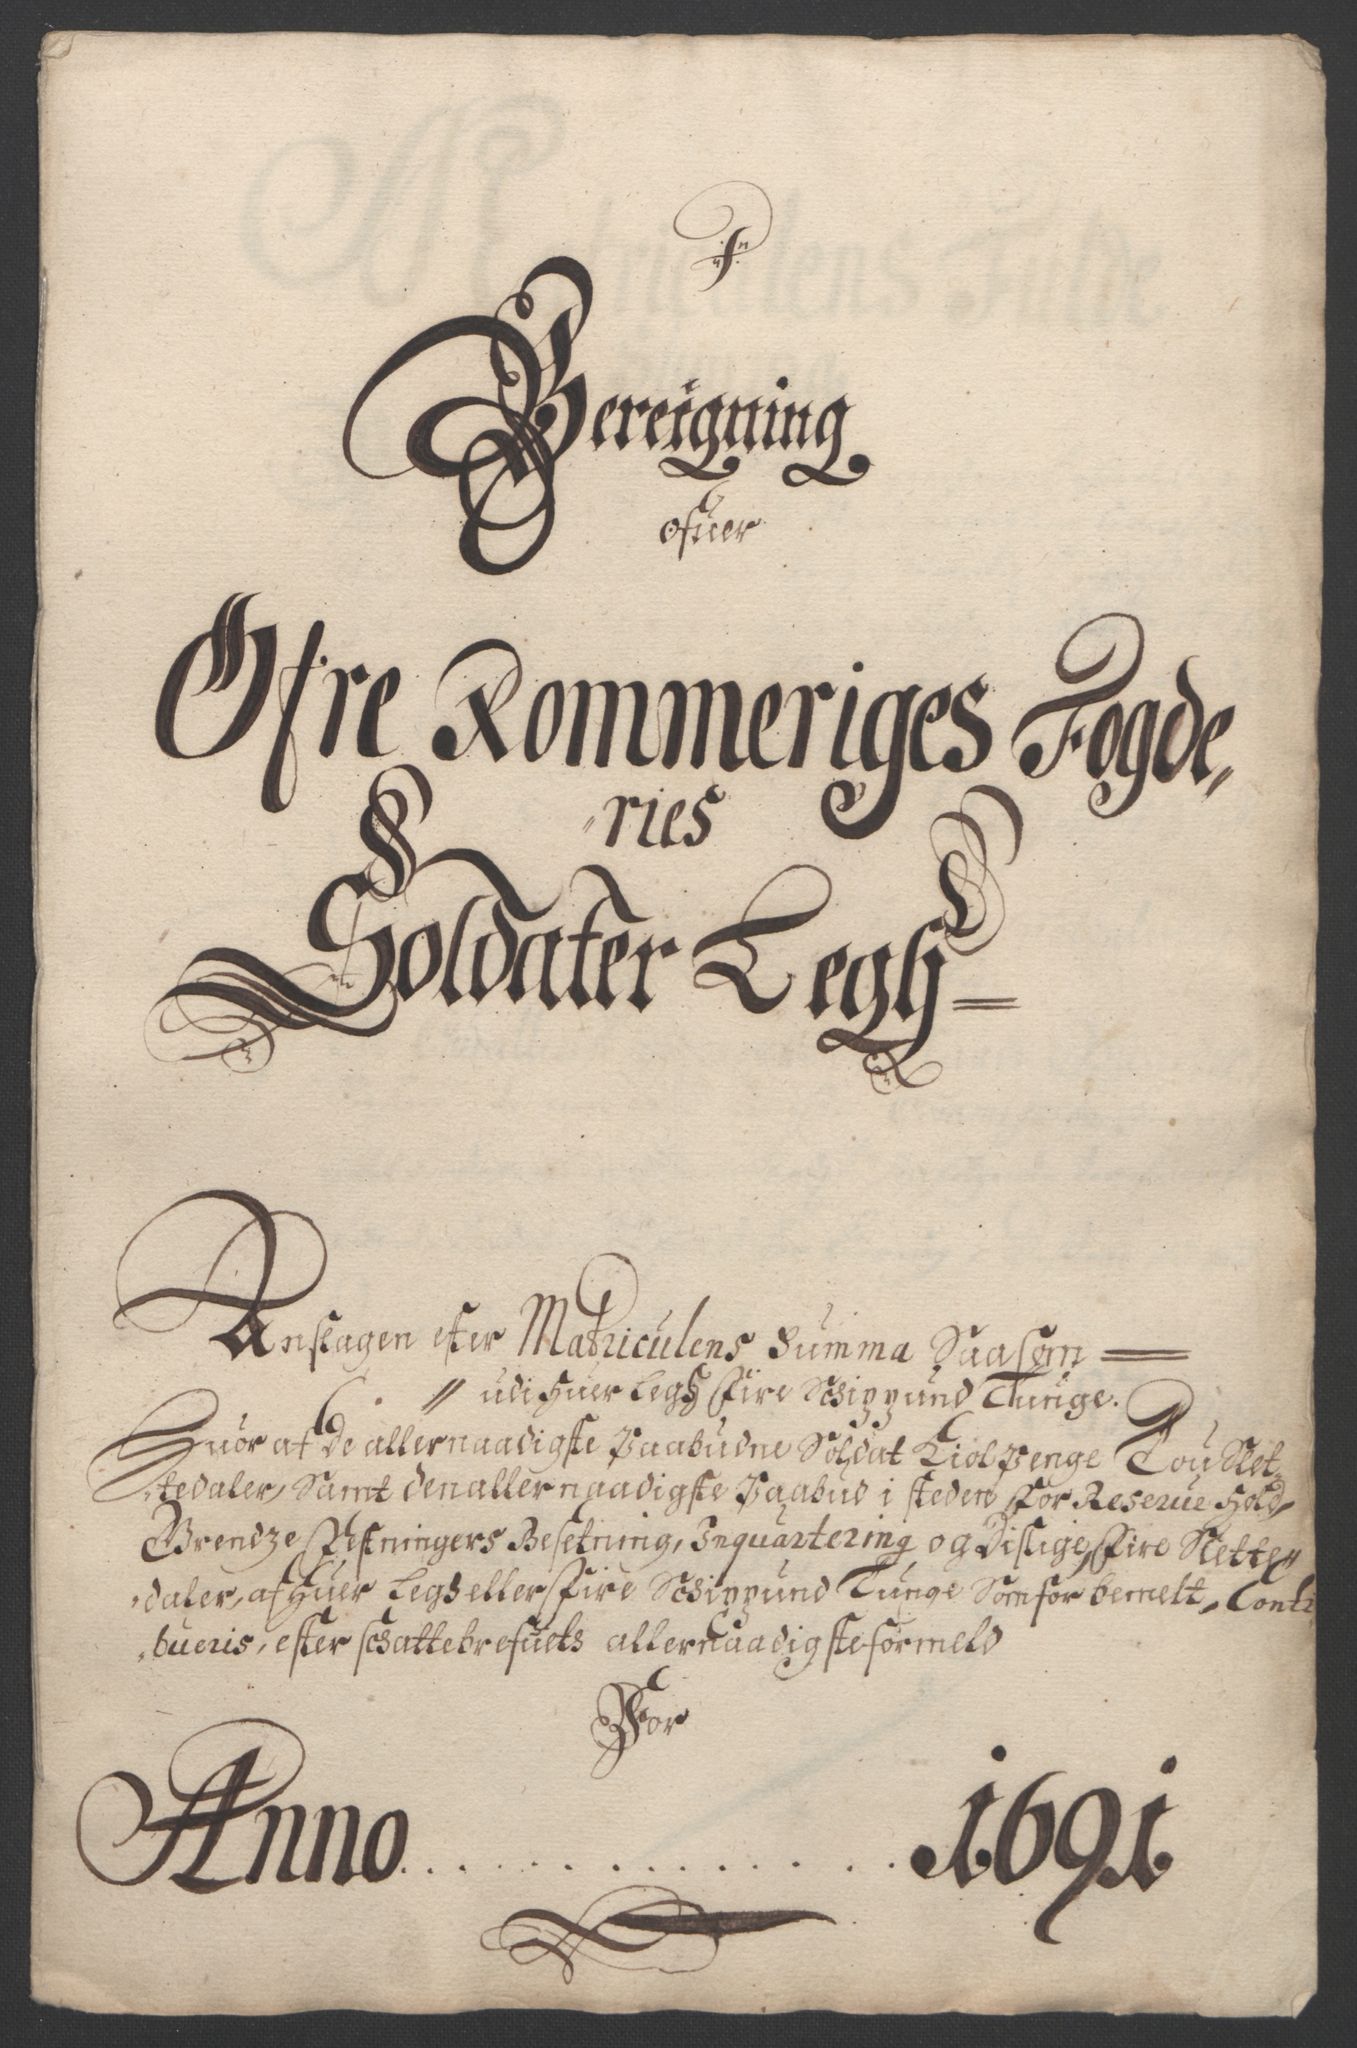 F
Bereigning
ofuer
Øfre Rommeriges Fogde„
„ries
Soldater Legh =
Anslagen efter Matriculens Summa Saasom =
„ udi Huer Legh Fire Schippund Tunge.
Huor af De allernaadigste Paabudne Soldat Kiol Penge Tou Slet„
„tedaler, Samt den allernaadigste Paabud i steden for Reserue Hold„
Grendze Festningers Besetning, Inquartering og Dislige, Fire Slette„
„daler, af Huer Legh eller Fire Schippund Tunge Som for bemelt, Contri
„bueris, efter schattebrefuets allernaadigste formeld
For
Anno . . . . . . . . . . . 1691